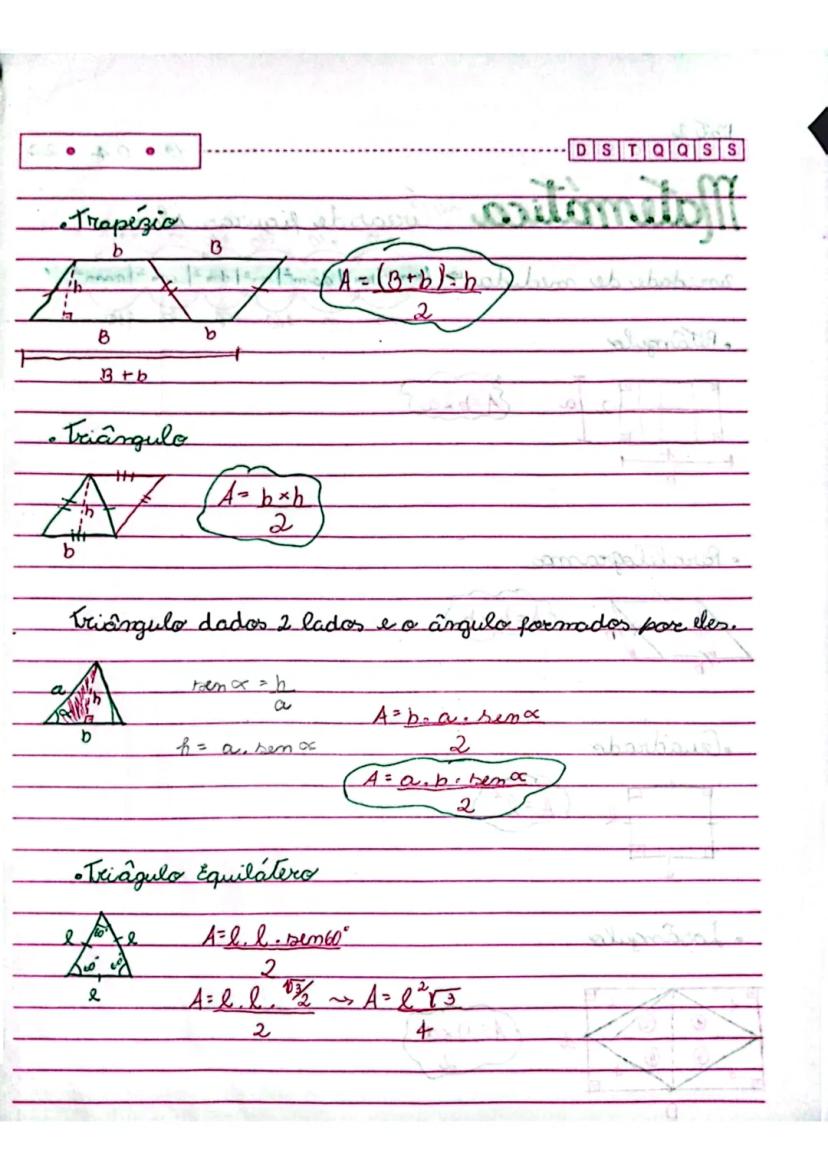 D S T Q Q S S
• Trapézio
b B
h
A = (B+b) · h
2
B b
B + b
• Triângulo
h
b
A = b × h
2
Triângulo dados 2 lados e o ângulo formados por eles.
a h
α
b
sen α = h
a
h = a . sen α
A = b . a . sen α
2
A = a . b . sen α
2
• Triâgulo Equilátero
60°
l l
60° 60°
l
A = l . l . sen60°
2
A = l . l . √3/2 ⟿ A = l²√3
2 4